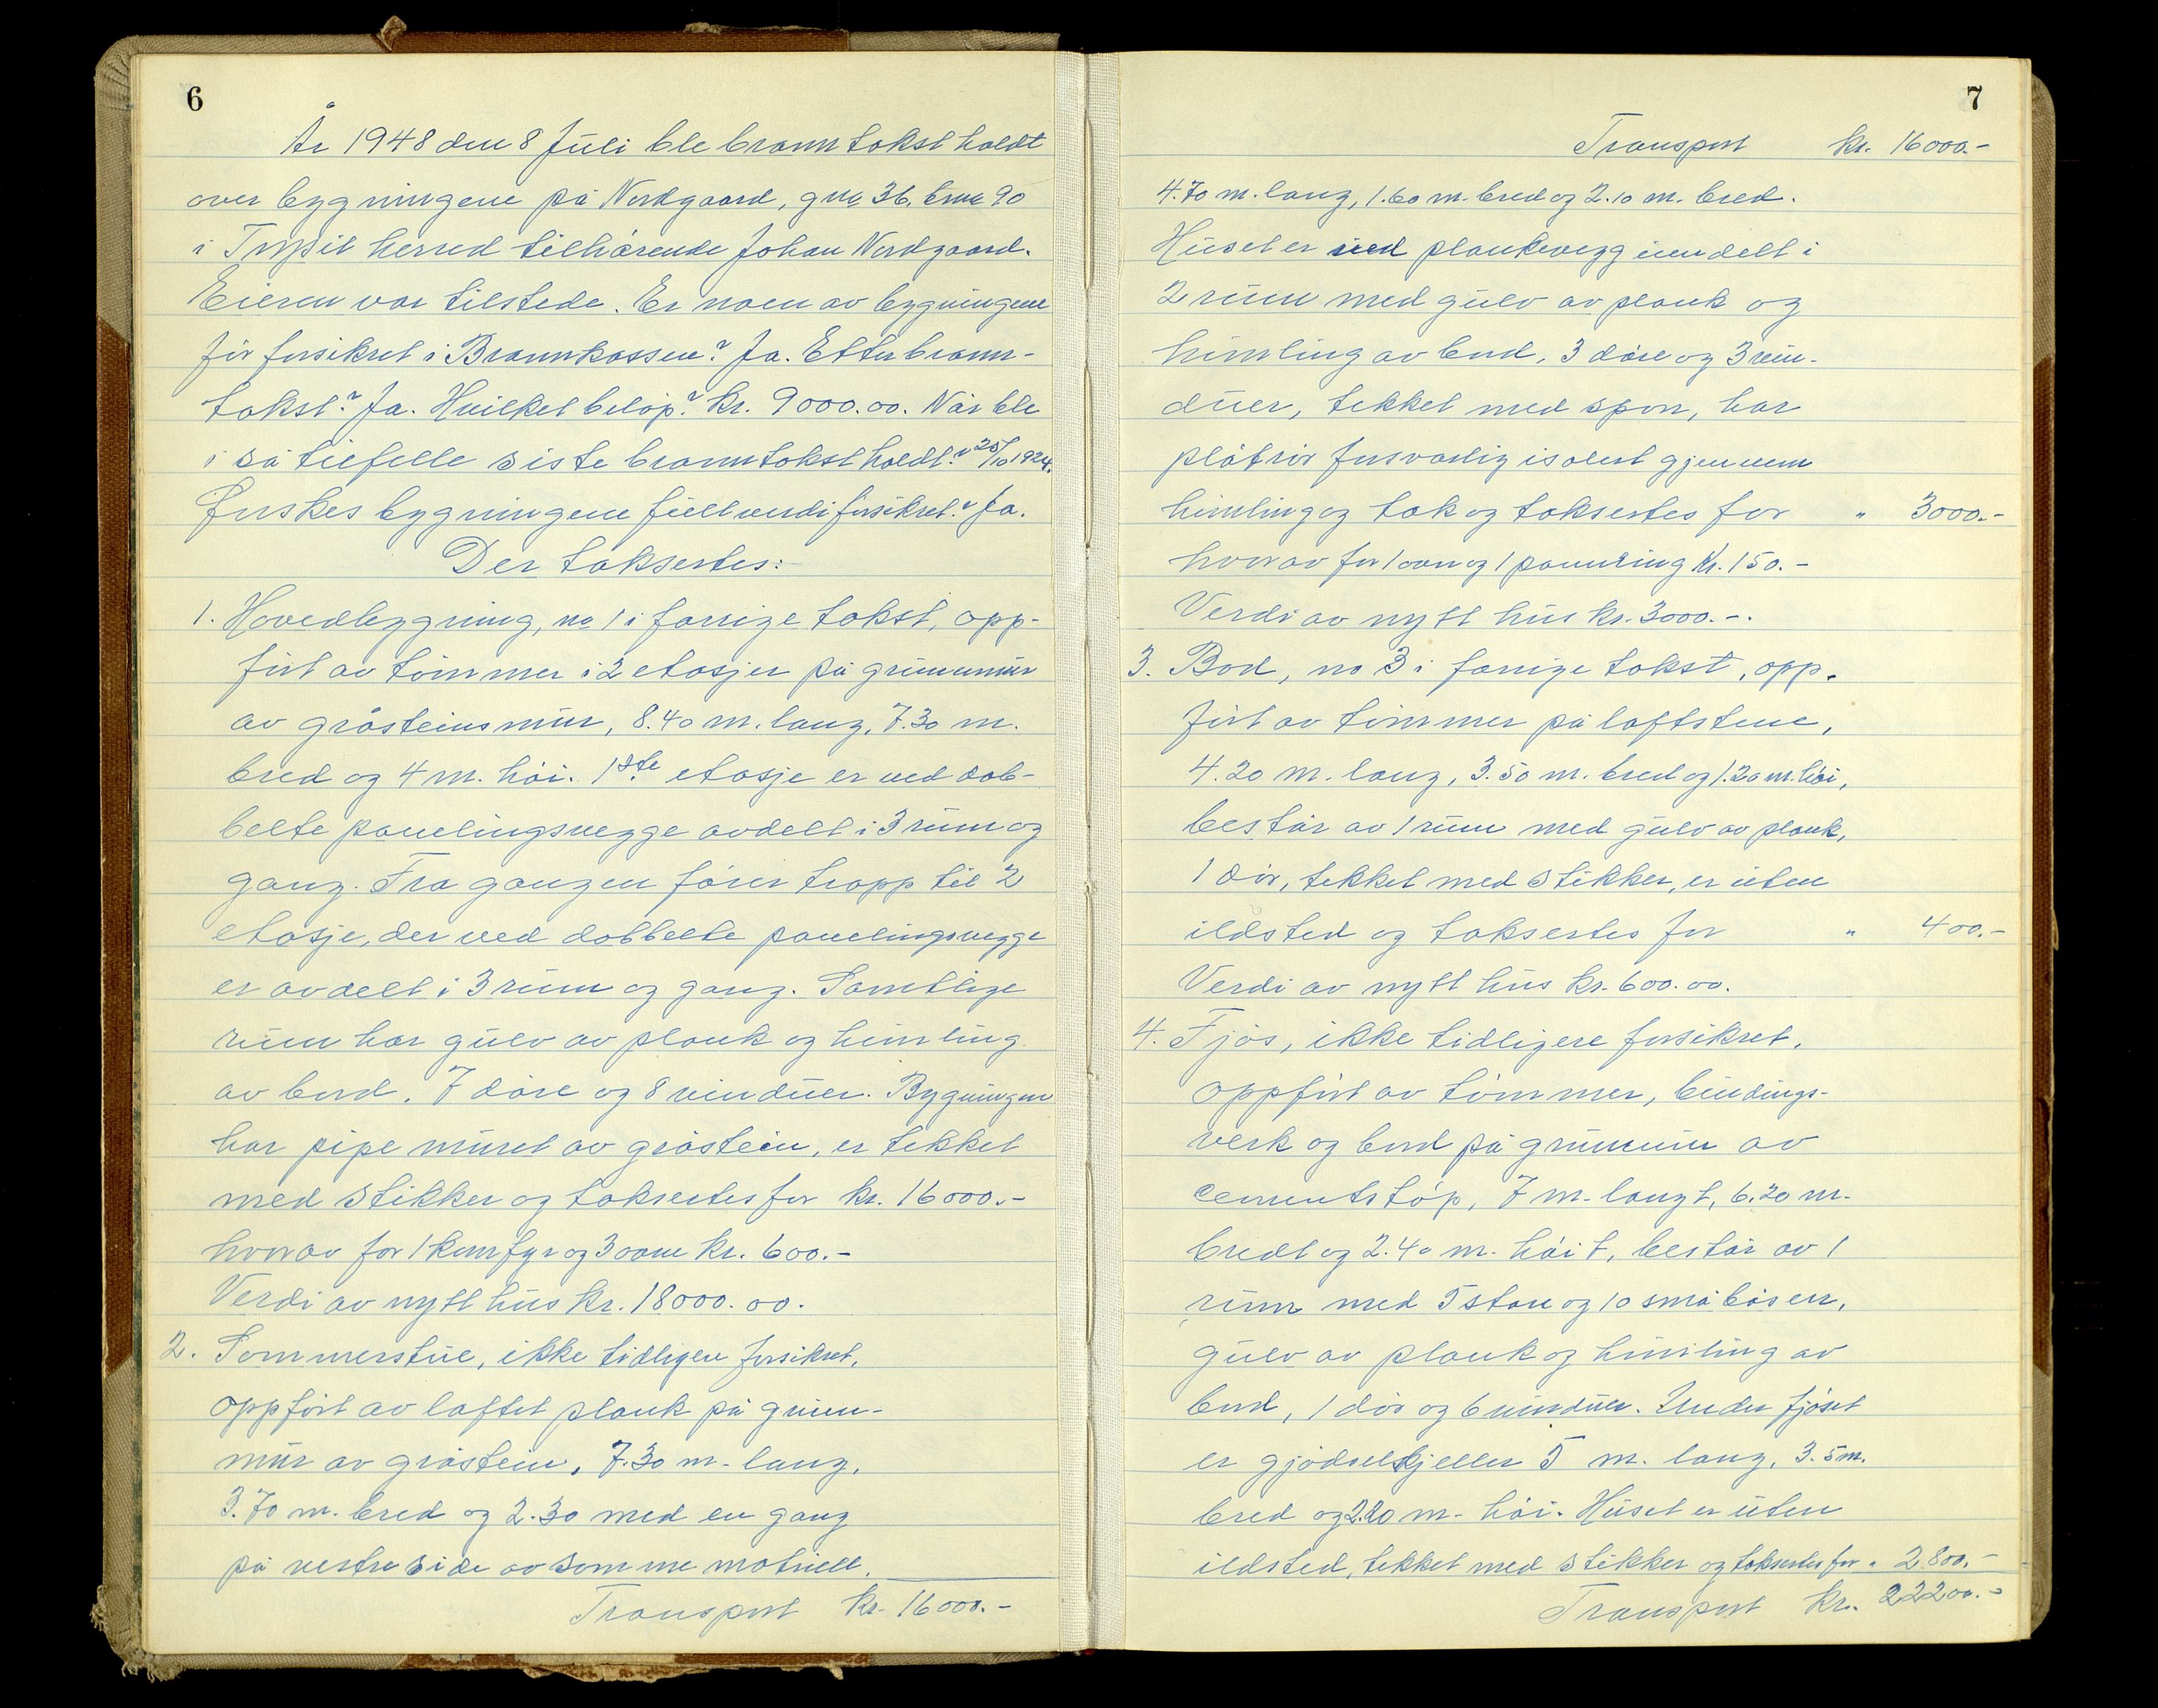 6
År 1948 den 8 Juli ble branntakst holdt
over bygningene på Nordgaard, gnr 36, bnr 90
i Trysil herred tilhörende Johan Nordgaard.
Eieren var tilstede. Er noen av bygningene
för forsikret i Brannkassen? Ja. Etter brann-
takst? Ja. Hvilket beløp? Kr. 9000.00. Når ble
i så tilfelle siste branntakst holdt? 25/10 1924.
Önskes bygningene fullverdiforsikret? Ja.
Der taksertes:
1. Hovedbygning, no 1 i forrige takst, opp-
fört av tömmer i 2 etasjer på grunnmur
av gråsteinsmur, 8.40 m. lang, 7.30 m.
bred og 4 m. höi. 1ste etasje er ved dob-
belte panelingsvegge avdelt i 3 rum og
gang. Fra gangen förer trapp til 2
etasje, der ved dobbelte panelingsvegge
er avdelt i 3 rum og gang. Samtlige
rum har gulv av plank og himling
av bord. 7 döre og 8 vinduer. Bygningen
har pipe muret av gråstein, er tekket
med stikker og taksertes for kr. 16000.-
hvorav for 1 komfyr og 3 ovne kr. 600.-
Verdi av nytt hus kr. 18000.00.
2. Sommerstue, ikke tidligere forsikret,
oppfört av laftet plank på grunn-
mur av gråstein, 7.30 m. lang,
3.70 m. bred og 2.30 med en gang
på vestre side av samme matriell.
Transport kr. 16000.-
7
Transport kr. 16000.-
4.70 m. lang, 1.60 m. bred og 2.10 m. bred.
Huset er ved plankevegg inndelt i
2 rum med gulv av plank og
himling av bord, 3 döre og 3 vin-
duer, tekket med spon, har
plåtrör forsvarlig isolert gjennem
himling og tak og taksertes for " 3000.-
hvorav for 1 ovn og 1 pannring kr. 150.-
Verdi av nytt hus kr. 3000.-.
3. Bod, no 3 i forrige takst, opp-
fört av tömmer på laftstene,
4.20 m. lang, 3.50 m. bred og 1.20 m. höi,
består av 1 rum med gulv av plank,
1 dör, tekket med stikker, er uten
ildsted og taksertes for " 400.-
Verdi av nytt hus kr. 600.00.
4. Fjös, ikke tidligere forsikret,
oppfört av tömmer, bindings-
verk og bord på grunnmur av
cementstöp, 7 m. langt, 6.20 m.
bredt og 2.40 m. höit, består av 1
rum med 5 store og 10 små båser,
gulv av plank og himling av
bord, 1 dör og 6 vinduer. Under fjöset
er gjödselkjeller 5 m. lang, 3.5 m.
bred og 2.20 m. höi. Huset er uten
ildsted, tekket med stikker og taksertes for " 2800.-
Transport kr. 22200.-